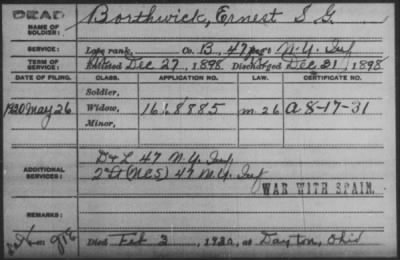 DEAD
NAME OF SOLDIER: Borthwick, Ernest S G.
SERVICE: Late rank, Co. B, 47 Reg't N.Y. Inf
TERM OF SERVICE: Enlisted Dec 27, 1898 Discharged Dec 31, 1898
DATE OF FILING. CLASS. APPLICATION NO. LAW. CERTIFICATE NO.
Soldier,
1920 May 26 Widow, 1618885 m. 26 A 8-17-31
Minor,
ADDITIONAL SERVICES: D & L 47 N.Y. Inf
2d Lt (NCS) 47 N.Y. Inf
WAR WITH SPAIN.
REMARKS:
Died Feb 3, 1920, at Dayton, Ohio